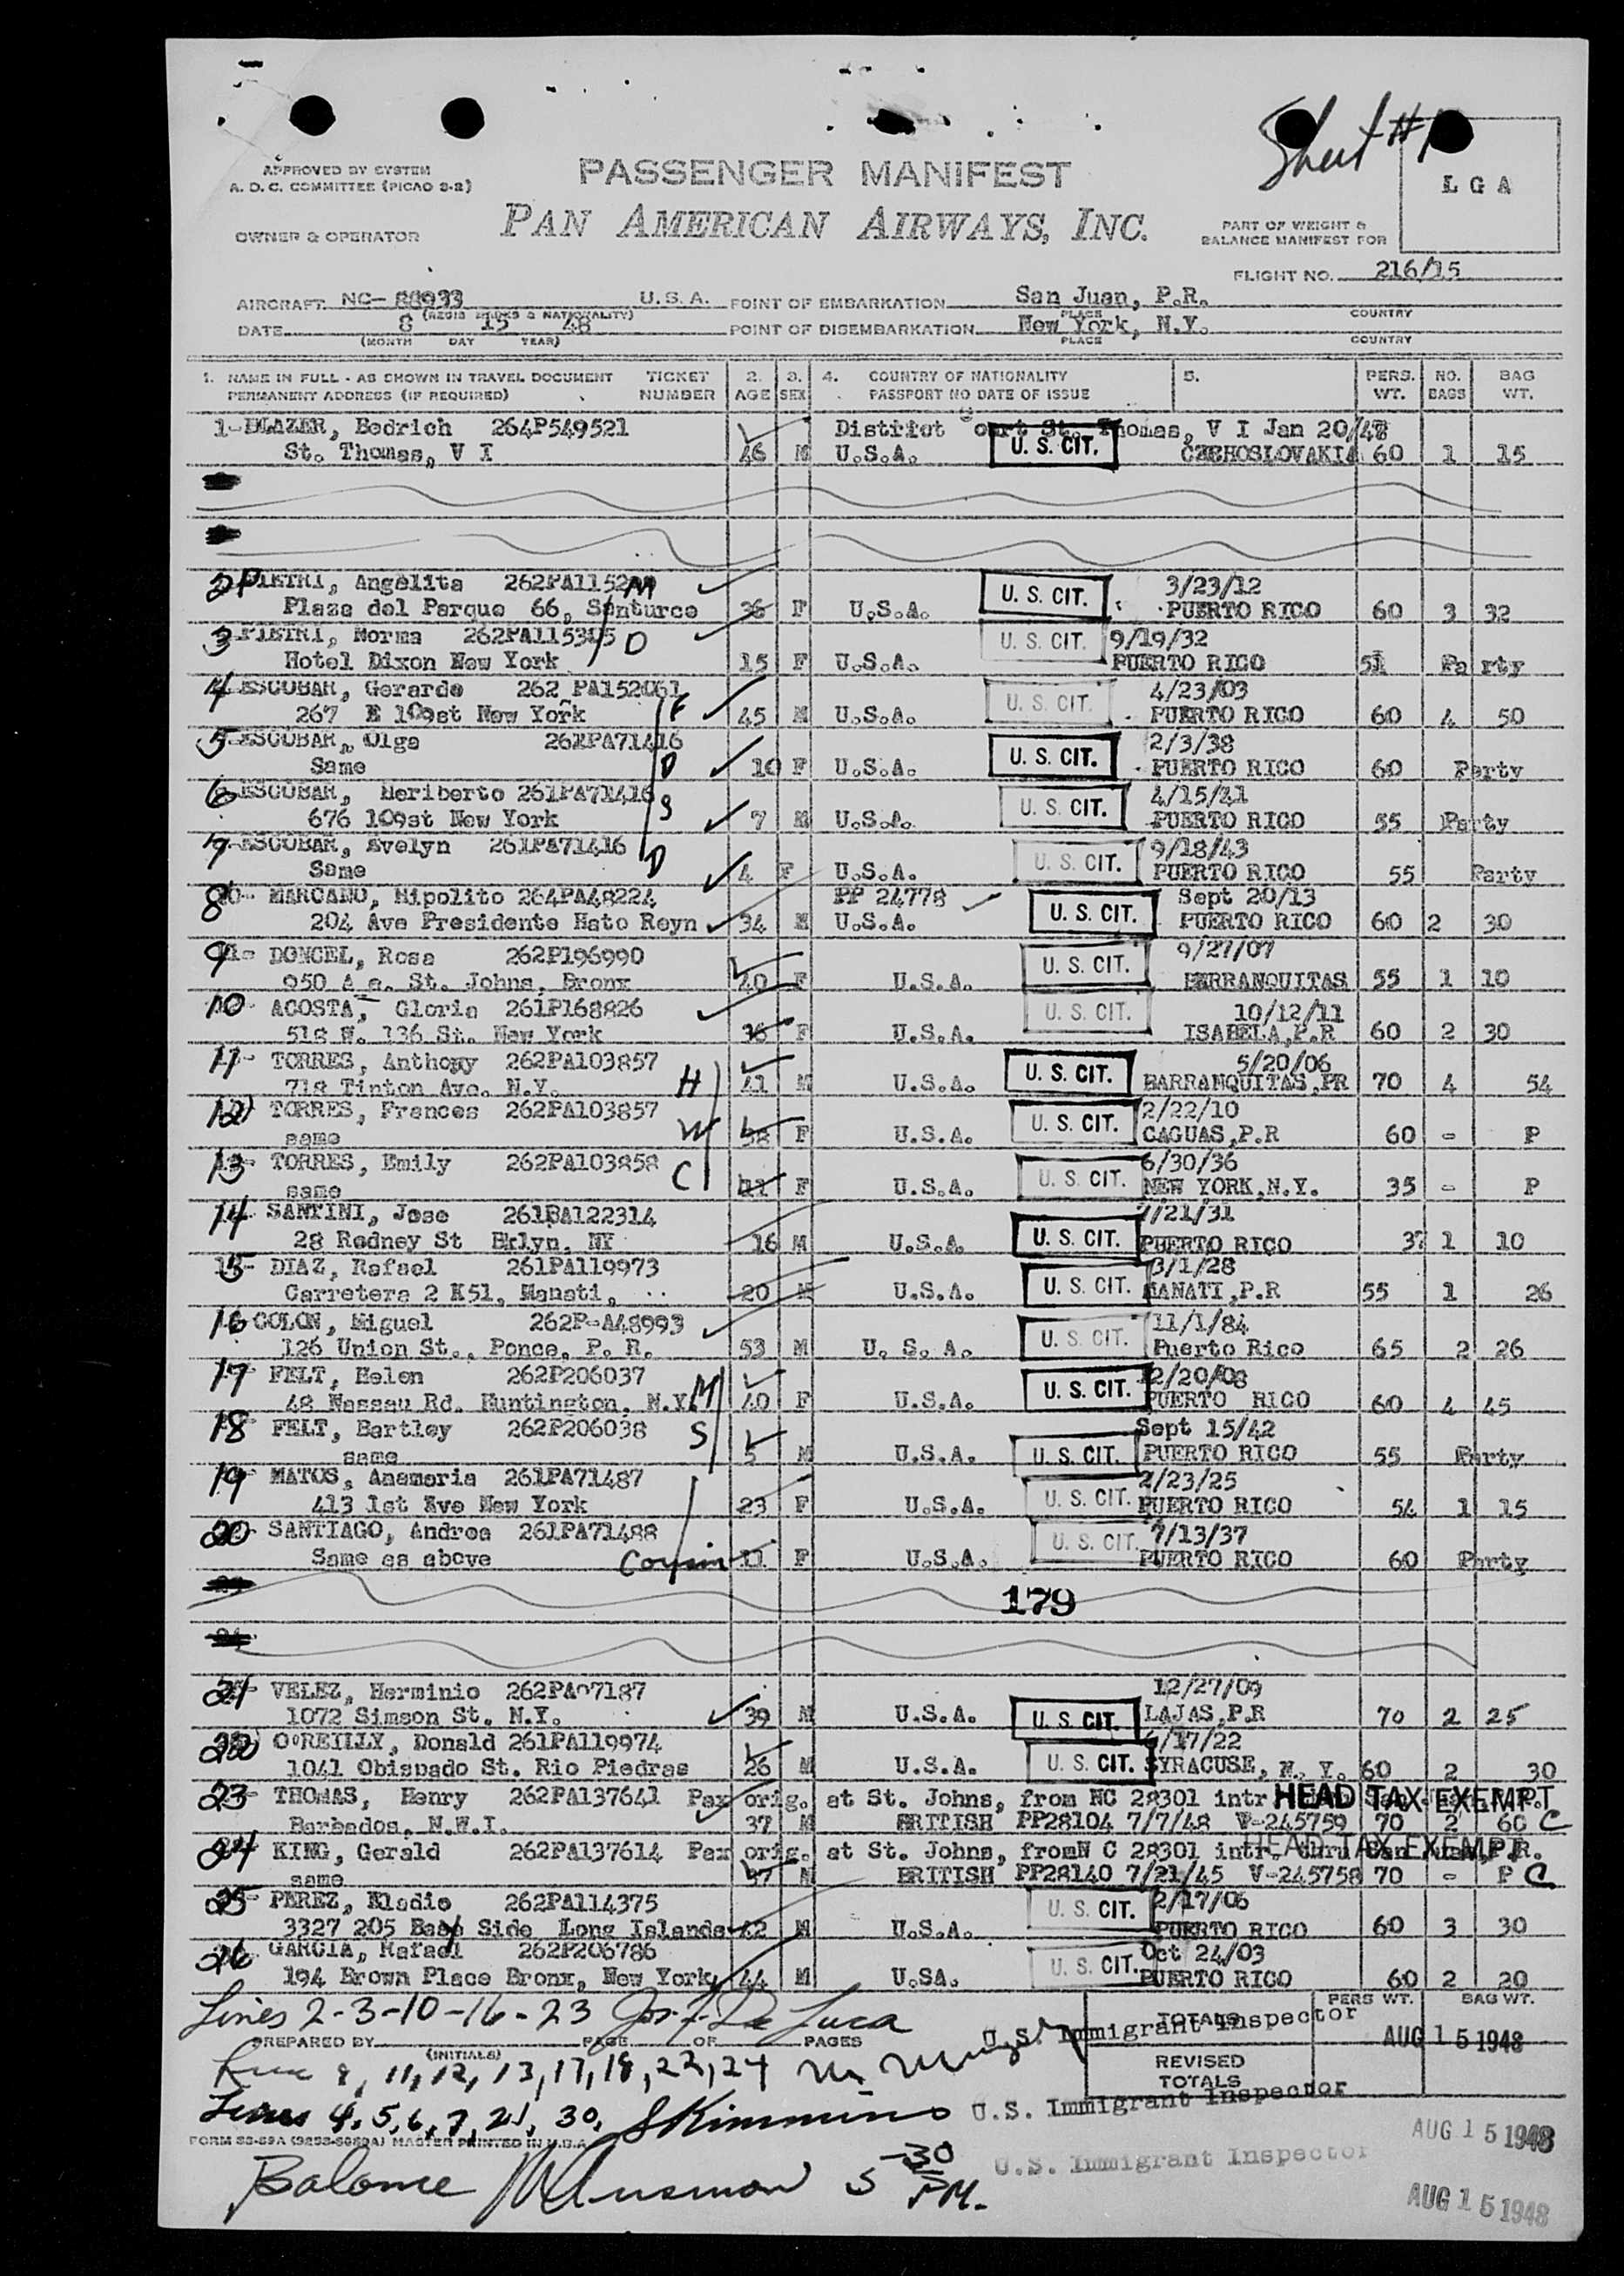 Sheet #1
APPROVED BY SYSTEM
A. D. C. COMMITTEE (PICAO S-2)
PASSENGER MANIFEST
L G A
OWNER & OPERATOR
PAN AMERICAN AIRWAYS, INC.
PART OF WEIGHT &
BALANCE MANIFEST FOR
FLIGHT NO. 216/15
AIRCRAFT NC- 88933 U.S.A. POINT OF EMBARKATION San Juan, P.R.
(REGIS MARKS & NATIONALITY) PLACE COUNTRY
DATE 8 15 48 POINT OF DISEMBARKATION New York, N.Y.
(MONTH DAY YEAR) PLACE COUNTRY
1. NAME IN FULL - AS SHOWN IN TRAVEL DOCUMENT TICKET 2. 3. 4. COUNTRY OF NATIONALITY 5. PERS. NO. BAG
PERMANENT ADDRESS (IF REQUIRED) NUMBER AGE SEX PASSPORT NO DATE OF ISSUE WT. BAGS WT.
1- BLAZER, Bedrich 264P549521 District Court St. Thomas, V I Jan 20/48
St. Thomas, V I 46 M U.S.A. U. S. CIT. CZECHOSLOVAKIA 60 1 15
2 PIETRI, Angelita M U. S. CIT. 3/23/12
Plaza del Parque 66, Santurce 36 F U.S.A. PUERTO RICO 60 3 32
3 PIETRI, Norma 262PA115305 D U. S. CIT. 9/19/32
Hotel Dixon New York 15 F U.S.A. PUERTO RICO 51 Party
4 ESCOBAR, Gerardo 262 PA152061 F U. S. CIT. 4/23/03
267 E 109st New York 45 M U.S.A. PUERTO RICO 60 4 50
5 ESCOBAR, Olga 261PA71416 U. S. CIT. 2/3/38
Same D 10 F U.S.A. PUERTO RICO 60 Party
6 ESCOBAR, Heriberto 261PA71416 S U. S. CIT. 4/15/41
676 109st New York 7 M U.S.A. PUERTO RICO 55 Party
7 ESCOBAR, Evelyn 261PA71416 D U. S. CIT. 9/18/43
Same 4 F U.S.A. PUERTO RICO 55 Party
8 MARCANO, Hipolito 264PA48224 PP 24778 Sept 20/13
204 Ave Presidente Hato Reyn 34 M U.S.A. U. S. CIT. PUERTO RICO 60 2 30
9 DONCEL, Rosa 262P196990 U. S. CIT. 9/27/07
950 A e. St. Johns, Bronx 40 F U.S.A. BARRANQUITAS 55 1 10
10 ACOSTA, Gloria 261P168826 U. S. CIT. 10/12/11
518 W. 136 St. New York 36 F U.S.A. ISABELA,P.R 60 2 30
11 TORRES, Anthony 262PA103857 U. S. CIT. 5/20/06
718 Tinton Ave. N.Y. H 41 M U.S.A. BARRANQUITAS,PR 70 4 54
12 TORRES, Frances 262PA103857 U. S. CIT. 2/22/10
same W 38 F U.S.A. CAGUAS,P.R 60 - P
13 TORRES, Emily 262PA103858 U. S. CIT. 6/30/36
same C 11 F U.S.A. NEW YORK,N.Y. 35 - P
14 SANTINI, Jose 261PA122314 U. S. CIT. 7/21/31
28 Rodney St Bklyn, NY 16 M U.S.A. PUERTO RICO 37 1 10
15 DIAZ, Rafael 261PA119973 U. S. CIT. 3/1/28
Carretera 2 K51, Manati, 20 M U.S.A. MANATI,P.R 55 1 26
16 COLON, Miguel 262P-A48993 U. S. CIT. 11/1/84
126 Union St., Ponce, P. R. 53 M U. S. A. Puerto Rico 65 2 26
17 FELT, Helen 262P206037 U. S. CIT. 12/20/08
48 Nassau Rd. Huntington, N.Y. M 40 F U.S.A. PUERTO RICO 60 4 45
18 FELT, Bartley 262P206038 S Sept 15/42
same 5 M U.S.A. U. S. CIT. PUERTO RICO 55 Party
19 MATOS, Anamoria 261PA71487 U. S. CIT. 2/23/25
413 1st Ave New York 23 F U.S.A. PUERTO RICO 54 1 15
20 SANTIAGO, Andrea 261PA71488 U. S. CIT. 7/13/37
Same as above Cousin 11 F U.S.A. PUERTO RICO 60 Party
179
21 VELEZ, Herminio 262PA97187 12/27/09
1072 Simson St. N.Y. 39 M U.S.A. U. S. CIT. LAJAS,P.R 70 2 25
22 O'REILLY, Donald 261PA119974 /17/22
1041 Obispado St. Rio Piedras 26 M U.S.A. U. S. CIT. SYRACUSE, N. Y. 60 2 30
23 THOMAS, Henry 262PA137641 Pax orig. at St. Johns, from NC 28301 intr HEAD TAX EXEMPT
Barbados, N.W.I. 37 M BRITISH PP28104 7/7/48 V-245759 70 2 60 C
24 KING, Gerald 262PA137614 Pax orig. at St. Johns, fromN C 28301 intr HEAD TAX EXEMPT
same 37 M BRITISH PP28140 7/21/45 V-245758 70 - P C
25 PEREZ, Eladio 262PA114375 U. S. CIT. 2/17/06
3327 205 Bay Side Long Islands 42 M U.S.A. PUERTO RICO 60 3 30
26 GARCIA, Rafael 262P206786 U. S. CIT. Oct 24/03
194 Brown Place Bronx, New York 44 M U.SA. PUERTO RICO 60 2 20
Lines 2-3-10-16-23 Jos. F. De Luca
PREPARED BY (INITIALS) PAGE OF PAGES
U.S. Immigrant Inspector
TOTALS PERS WT. BAG WT.
AUG 15 1948
REVISED TOTALS
8, 11, 12, 13, 17, 18, 22, 24
U.S. Immigrant Inspector
Lines 4, 5, 6, 7, 21, 30, SKimmins
AUG 15 1948
U.S. Immigrant Inspector
Balance 5-30 PM.
AUG 15 1948